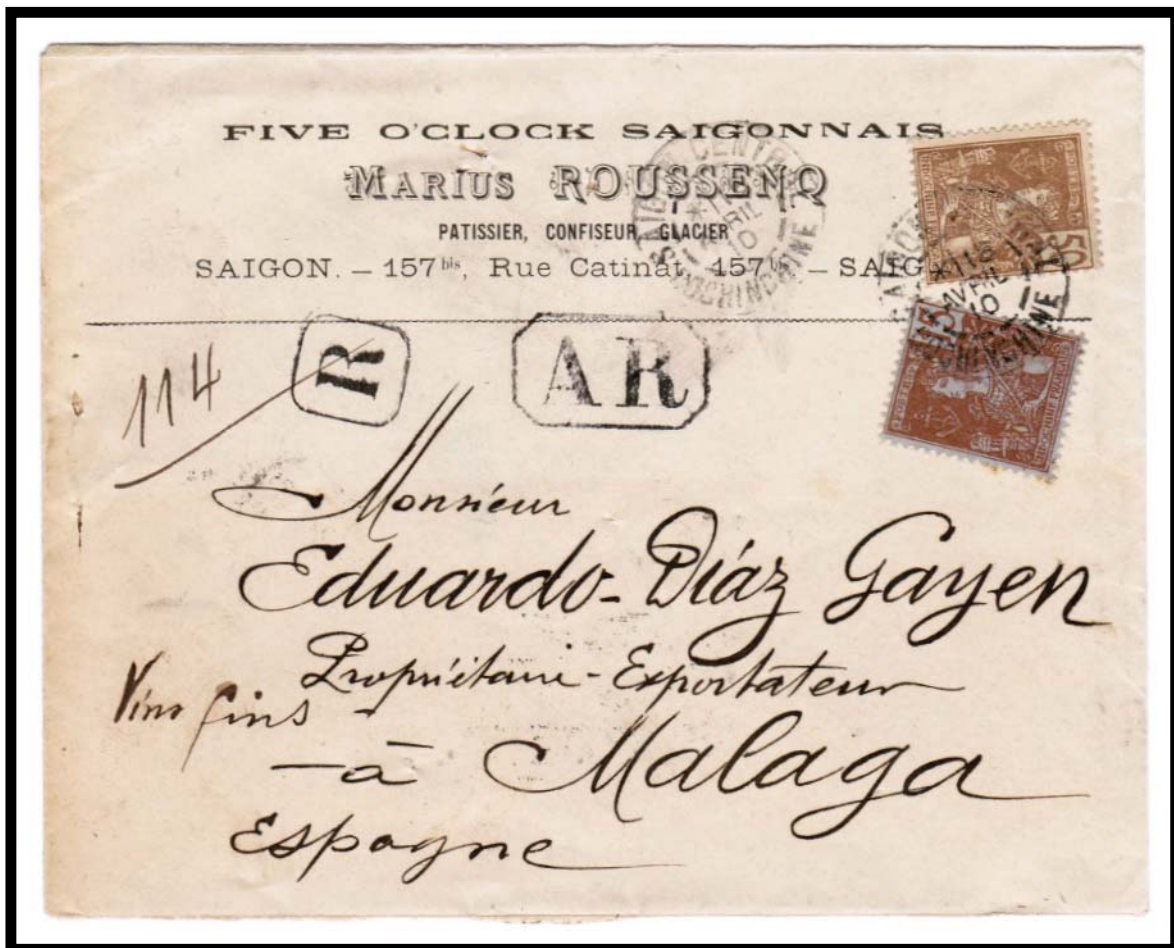 FIVE O'CLOCK SAIGONNAIS
MARIUS ROUSSENQ
PATISSIER, CONFISEUR, GLACIER
SAIGON. – 157 bis, Rue Catinat, 157 bis – SAIG
SAIGON CENTRAL
AVRIL
10
COCHINCHINE
SAIGON
AVRIL
10
COCHINCHINE
15
R
AR
114
Monsieur
Eduardo-Díaz Gayen
Propriétaire-Exportateur
Vins fins
– à Malaga
Espagne